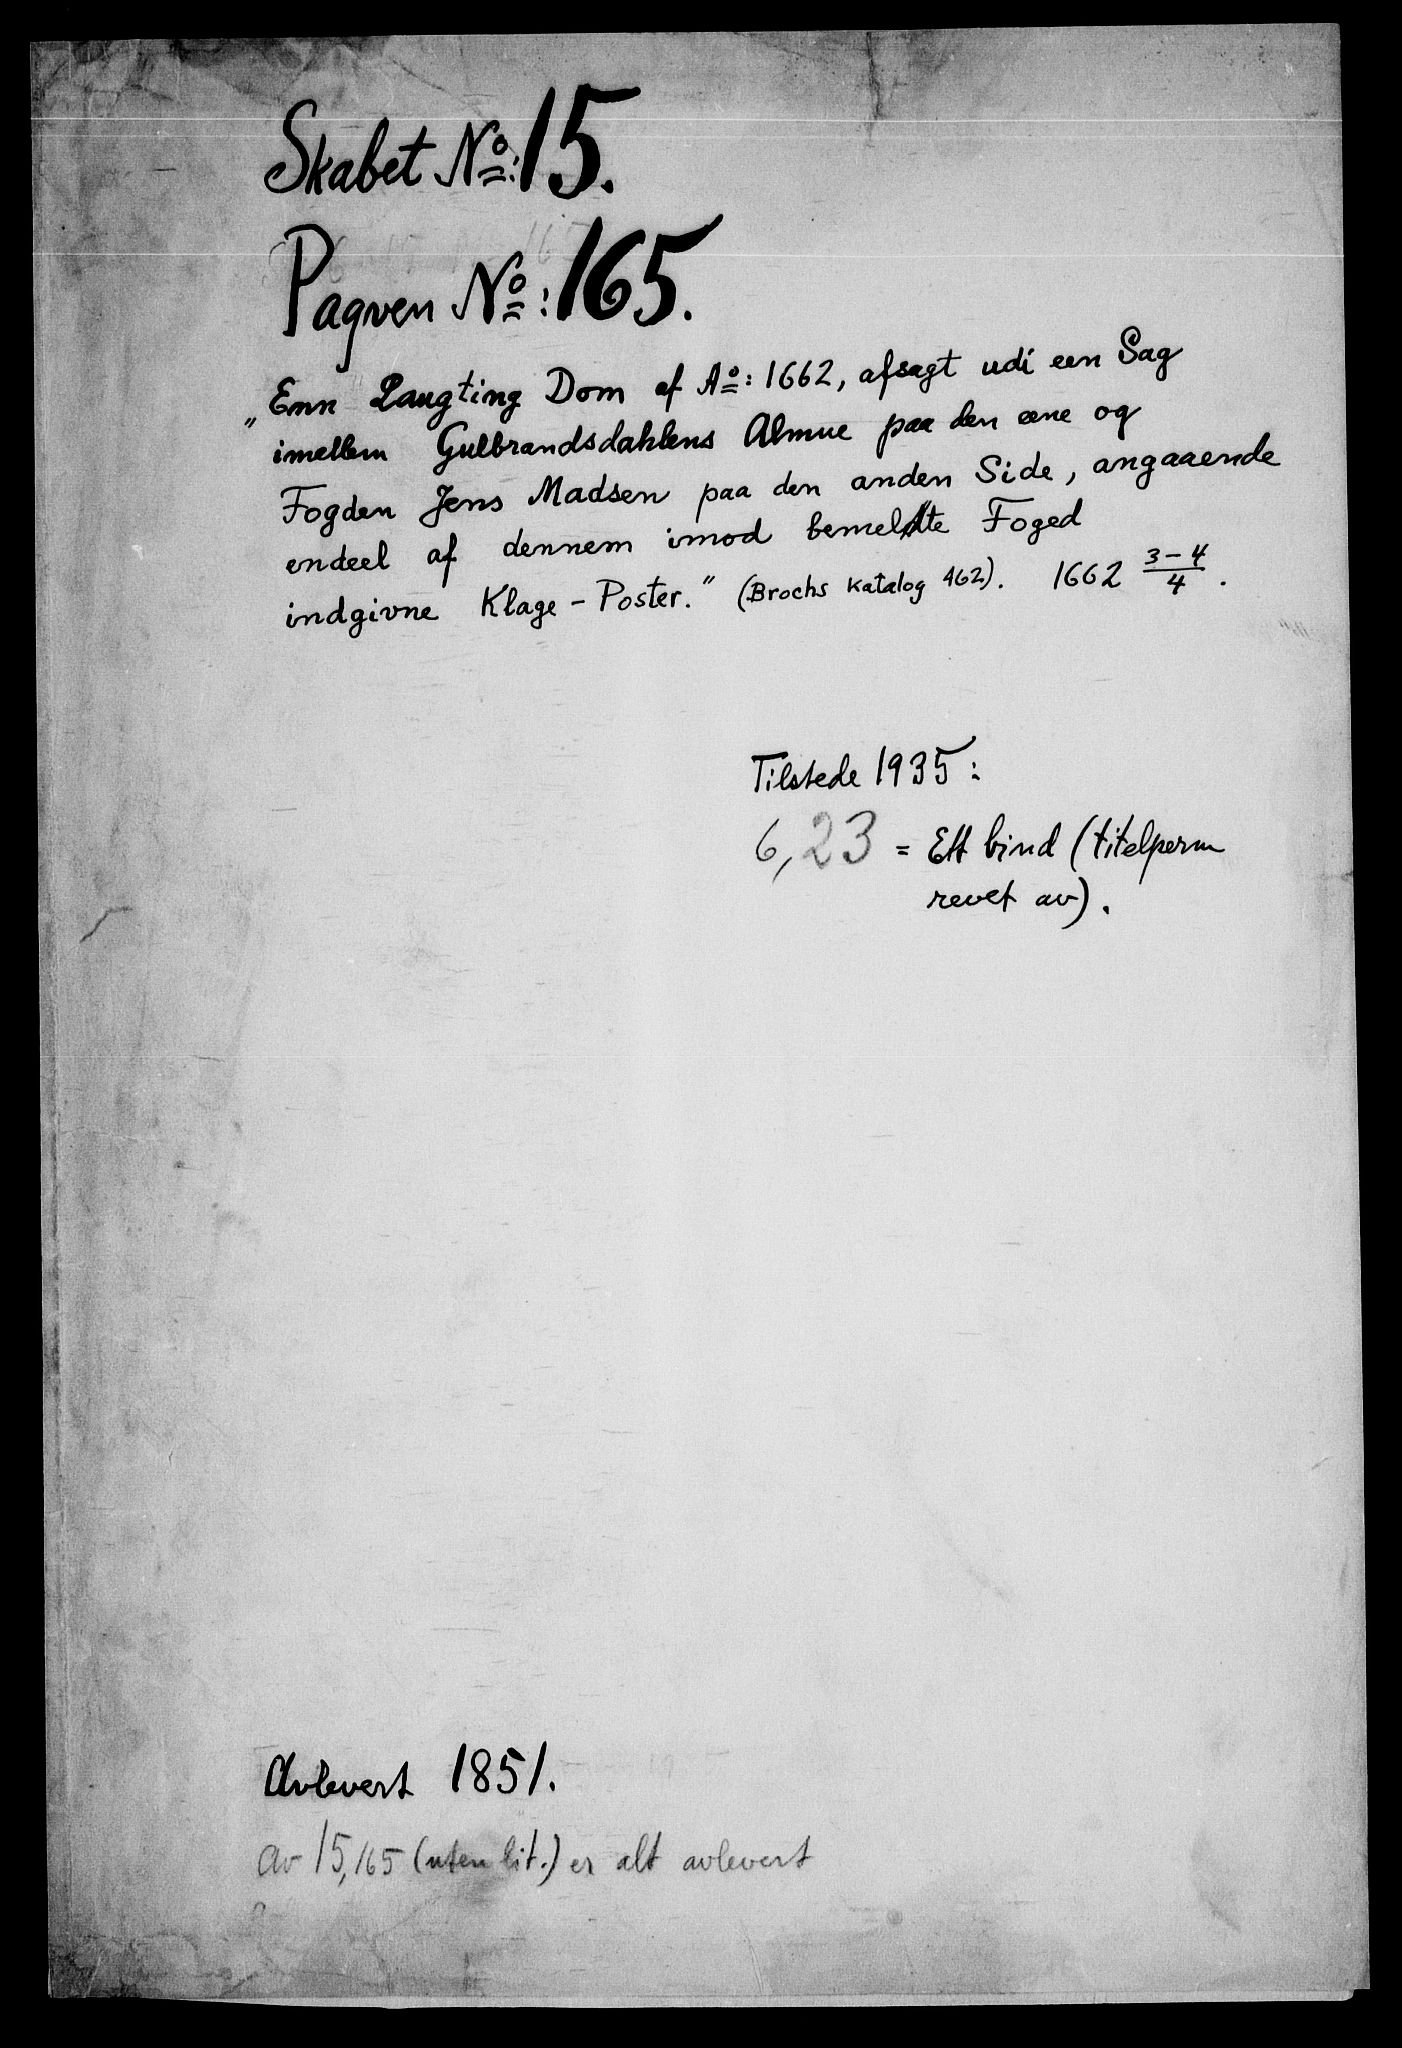 Skabet No: 15.
Paqven No: 165.
"Enn Laugting Dom af Ao: 1662, afsagt udi een Sag
imellem Gulbrandsdahlens Almue paa den eene og
Fogden Jens Madsen paa den anden Side, angaaende
endeel af dennem imod bemeldte Foged
indgivne Klage-Poster." (Brochs katalog 462). 1662 3-4/4.
Tilstede 1935:
6,23 = Ett bind (titelperm
revet av).
Avlevert 1851.
Av 15,165 (uten lit.) er alt avlevert